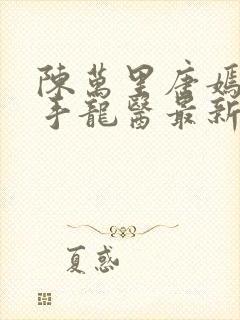 陳萬里唐嫣
手龍醫最新
夏惑